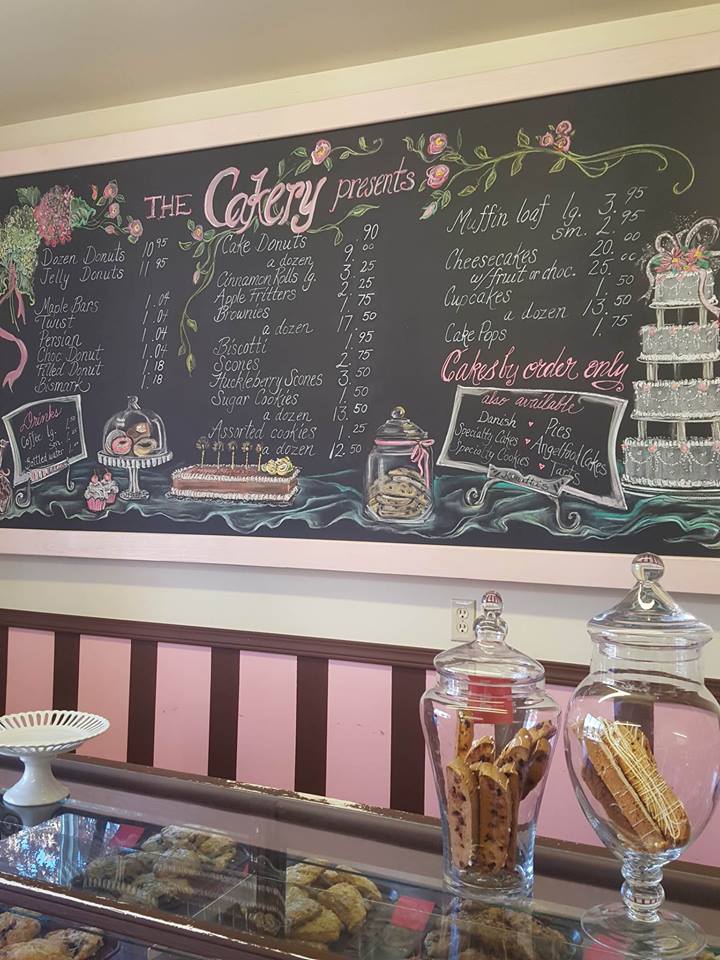 THE Cakery presents
Dozen Donuts 10.95
Jelly Donuts 11.95
Maple Bars 1.04
Twist 1.04
Persian 1.04
Choc Donut 1.04
Filled Donut 1.18
Bismark 1.18
Drinks
Coffee lg.
sm.
Bottled water
Cake Donuts .90
a dozen 9.00
Cinnamon Rolls lg. 3.25
Apple Fritters 2.25
Brownies 1.75
a dozen 17.50
Biscotti 1.95
Scones 2.75
Huckleberry Scones 3.50
Sugar Cookies 1.50
a dozen 13.50
Assorted cookies 1.25
a dozen 12.50
Muffin loaf lg. 3.95
sm. 2.95
Cheesecakes 20.00
w/fruit or choc. 25.00
Cupcakes 1.50
a dozen 13.50
Cake Pops 1.75
Cakes by order only
also available
Danish ♥ Pies
Specialty Cakes ♥ Angelfood Cakes
Specialty Cookies ♥ Tarts